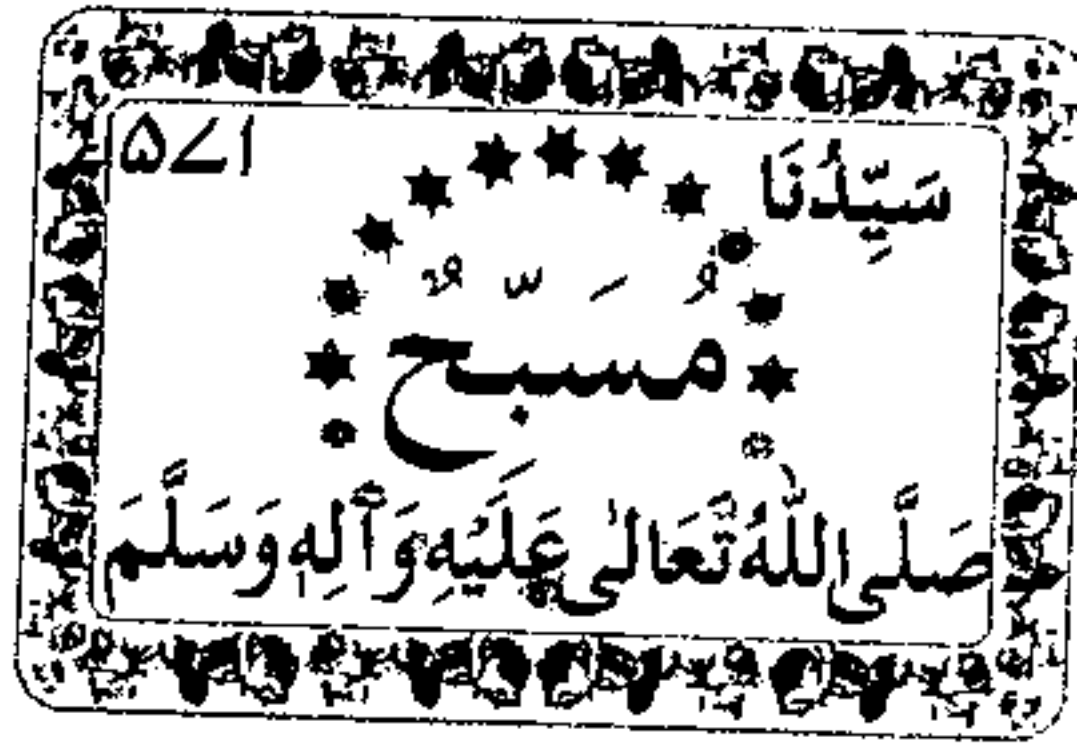 سَيِّدُنَا
۵۷۱
مُسَبِّحٌ
صَلَّى اللّٰهُ تَعَالٰى عَلَيْهِ وَآلِهٖ وَسَلَّمَ